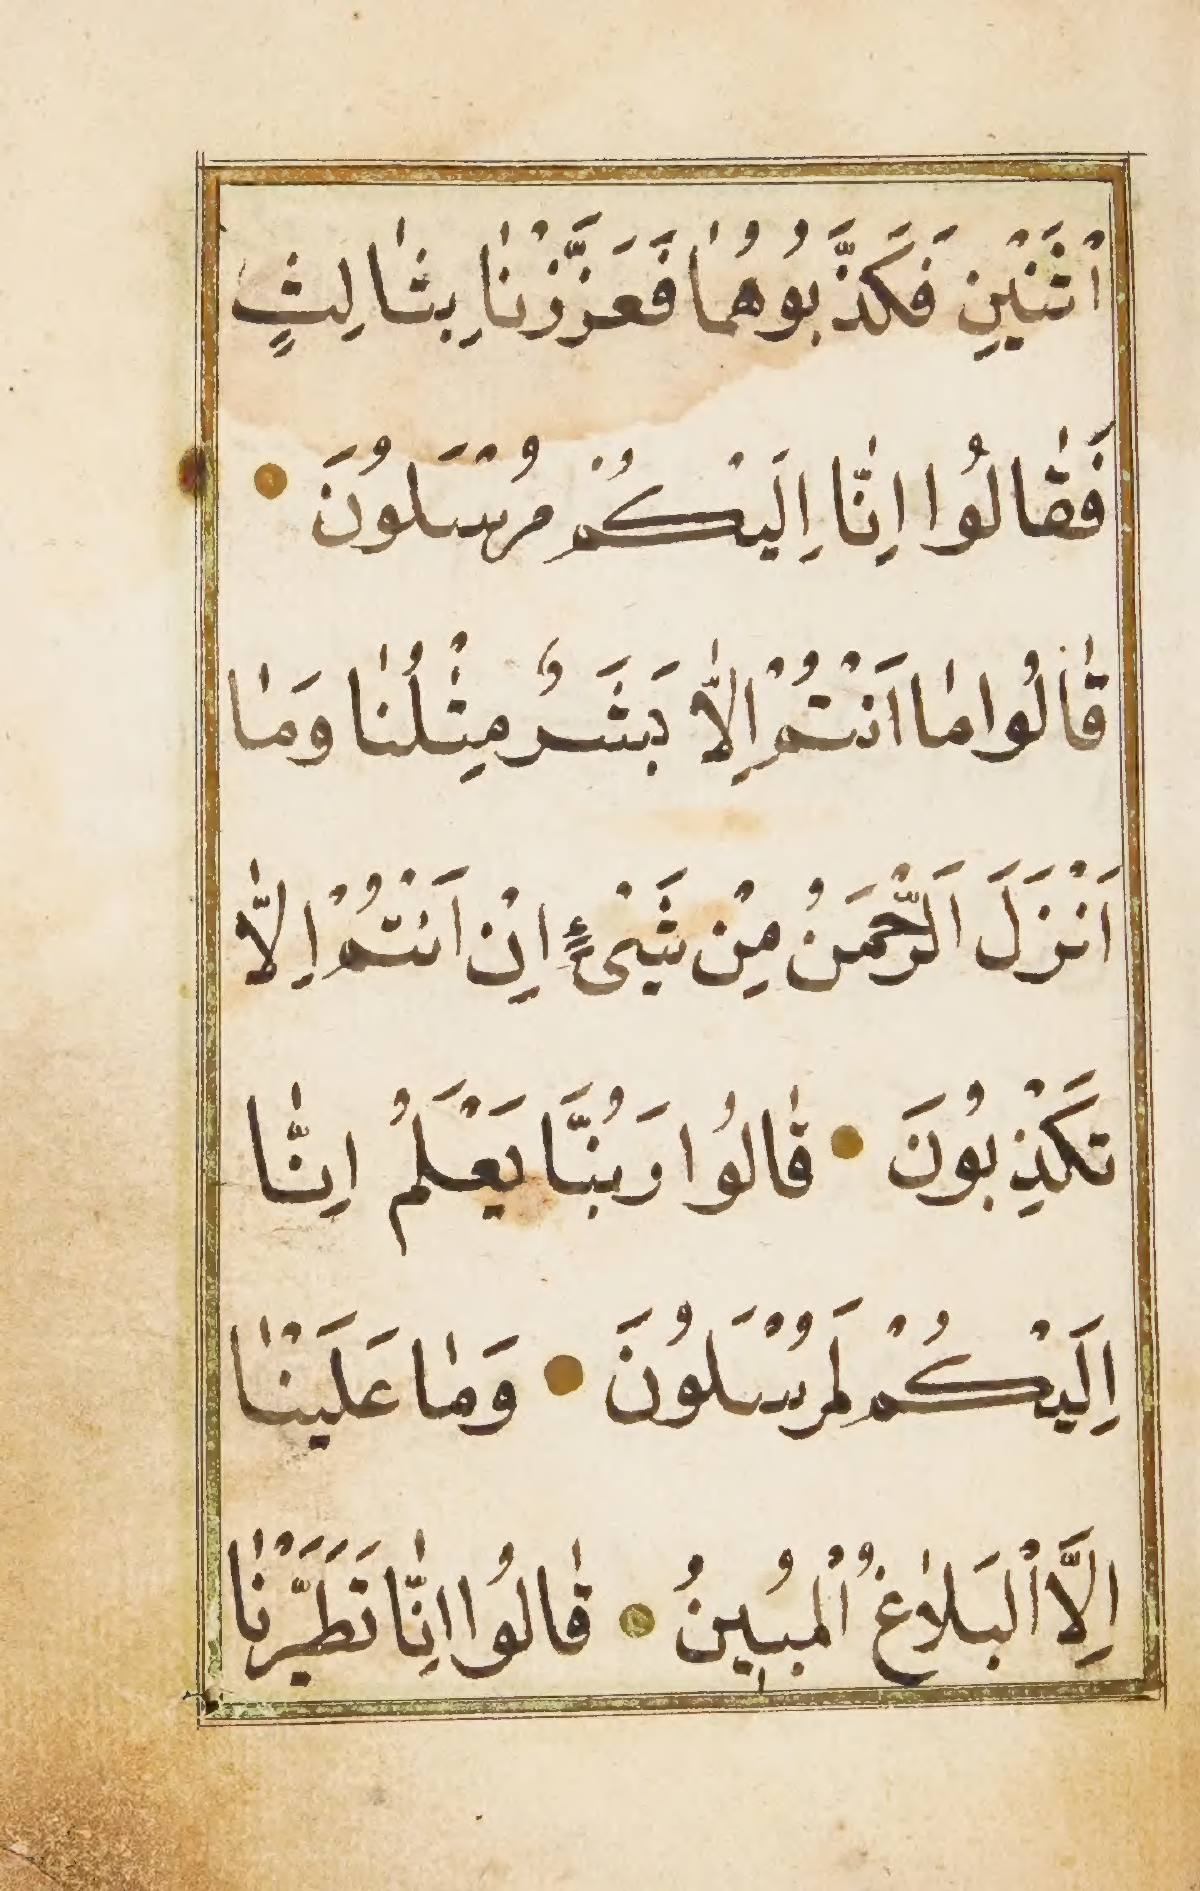 اثْنَيْنِ فَكَذَّبُوهُمٰا فَعَزَّزْنٰا بِثٰالِثٍ
فَقٰالُوا اِنّٰا اِلَيْكُمْ مُرْسَلُونَ
قٰالُوا مٰا اَنْتُمْ اِلاّٰ بَشَرٌ مِثْلُنٰا وَمٰا
اَنْزَلَ اَلرَّحْمَنُ مِنْ شَيْءٍ اِنْ اَنْتُمْ اِلاّٰ
تَكْذِبُونَ قٰالُوا رَبُنَّا يَعْلَمُ اِنّٰا
اِلَيْكُمْ لَمُرْسَلُونَ وَمٰا عَلَيْنٰا
اِلَّا اْلبَلاٰغُ اْلمُبِينُ قٰالُوا اِنّٰا تَطَيَّرْنٰا